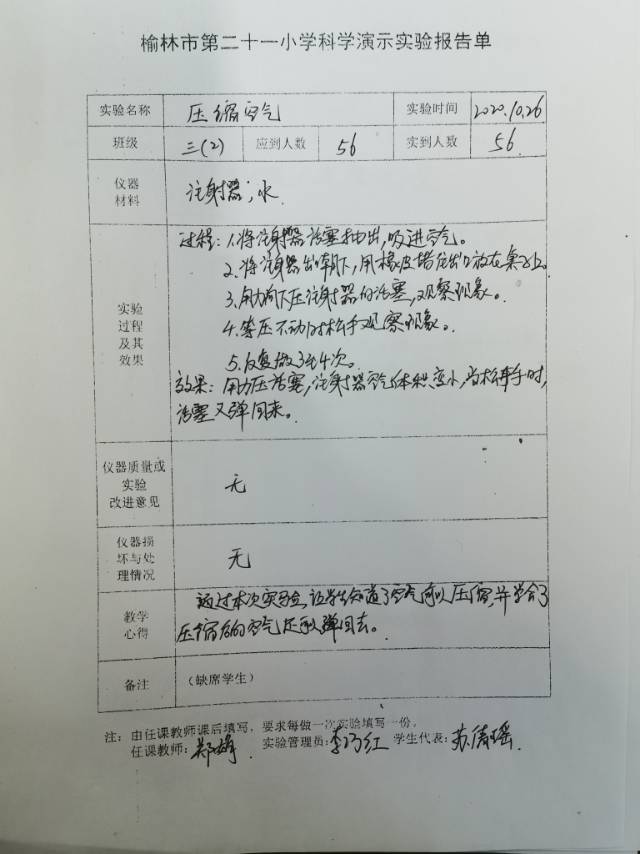 榆林市第二十一小学科学演示实验报告单
实验名称 压缩空气 实验时间 2020.10.26
班级 三(2) 应到人数 56 实到人数 56
仪器
材料
注射器;水
实验
过程
及其
效果
过程:1.将注射器活塞抽出,吸进空气。
2.将注射器出口朝下,用橡皮堵住出口放在桌子上。
3.用力向下压注射器的活塞,观察现象。
4.等压不动时松手观察现象。
5.反复做3至4次。
效果:用力压活塞,注射器空气体积变小,当松手时,
活塞又弹回来。
仪器质量或
实验
改进意见
无
仪器损
坏与处
理情况
无
教学
心得
通过本次实验,让学生知道了空气可以压缩,并
压缩后的空气还可以弹回去。
备注 (缺席学生)
注:由任课教师课后填写,要求每做一次实验填写一份。
任课教师:郑婷 实验管理员:李巧红 学生代表:苏瑶